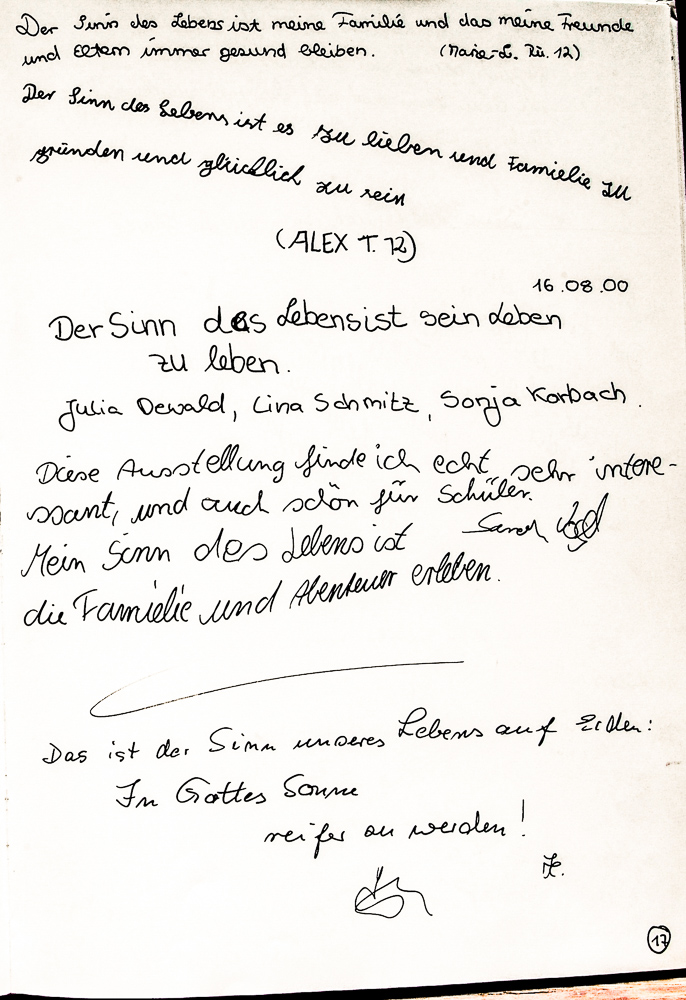 Der Sinn des Lebens ist meine Familie und das meine Freunde
und Eltern immer gesund bleiben. (Marie-L. Rü. 12)
Der Sinn des Lebens ist es zu lieben und Famielie zu
gründen und glücklich zu sein
(ALEX T. 12)
16.08.00
Der Sinn des Lebens ist sein Leben
zu leben.
Julia Dewald, Lina Schmitz, Sonja Korbach.
Diese Ausstellung finde ich echt sehr intere-
ssant, und auch schön für Schüler.
Sarah
Mein Sinn des Lebens ist
die Famielie und Abenteuer erleben.
Das ist der Sinn unseres Lebens auf Erden:
In Gottes Sonne
reifer zu werden!
17